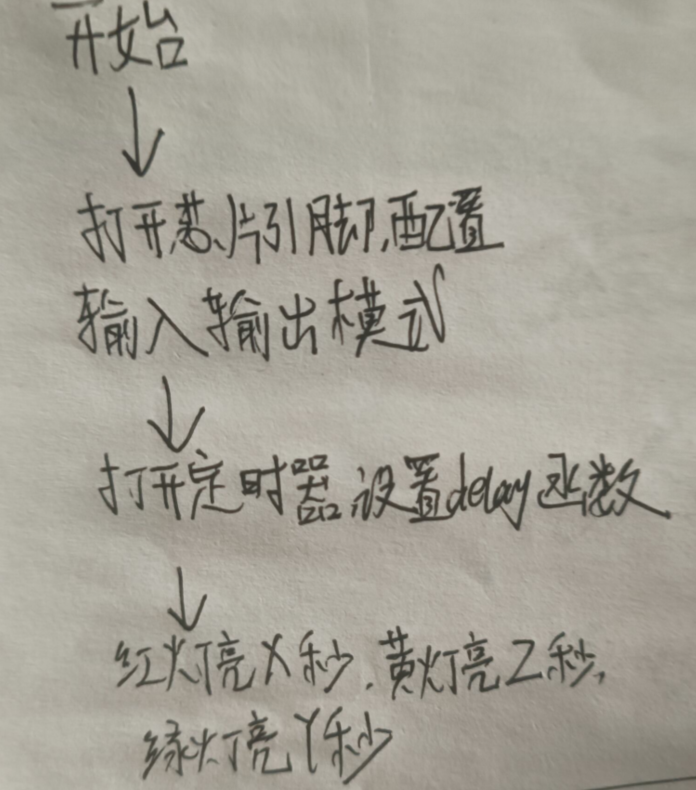 开始
打开芯片引脚,配置
输入输出模式
打开定时器设置delay函数
红灯亮X秒,黄灯亮Z秒,
绿灯亮Y秒